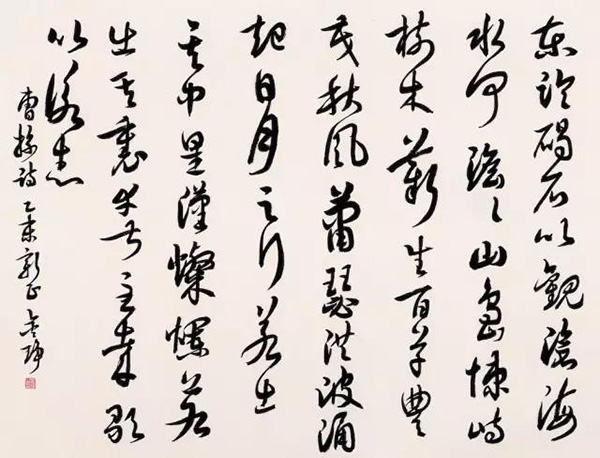 东臨碣石以觀滄海
水何澹々山島悚峙
樹木叢生百草豐
茂秋風蕭瑟洪波涌
起日月之行若出
其中星漢燦爛若
出其裏幸甚至哉歌
以詠志
曹操詩 乙未新正